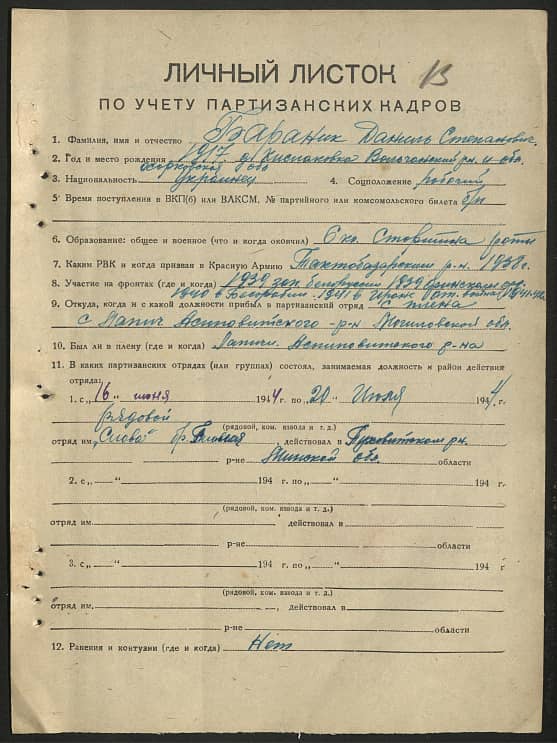 ЛИЧНЫЙ ЛИСТОК
ПО УЧЕТУ ПАРТИЗАНСКИХ КАДРОВ
1. Фамилия, имя и отчество Бараник Даниль Степанович
2. Год и место рождения 1917 д.
обл
3. Национальность украинец 4. Соцположение рабочий
5. Время поступления в ВКП(б) или ВЛКСМ, № партийного или комсомольского билета б/п
6. Образование: общее и военное (что и когда окончил) 6 кл. роты
7. Каким РВК и когда призван в Красную Армию р-н. 1938 г.
8. Участие на фронтах (где и когда) 1939 зап. белоруссии 1939
1940 в 1941 в
9. Откуда, когда и с какой должности прибыл в партизанский отряд с плена
с Лапич Асиповитского р-н Могиловской обл.
10. Был ли в плену (где и когда) Лапичи. Асиповитского р-на
11. В каких партизанских отрядах (или группах) состоял, занимаемая должность и район действия
отряда:
1. с „16" июня 1944 г. по „20" Июля 1944 г.
рядовой
(рядовой, ком. взвода и т. д.)
отряд им „Слова" бр. , действовал в Пуховитском рн.
р-не Минской обл. области
2. с „ " 194 г. по „ " 194 г.
(рядовой, ком. взвода и т. д.)
отряд им. действовал в
р-не области
3. с „ " 194 г. по „ " 194 г.
(рядовой, ком. взвода и т. д.)
отряд им. , действовал в
р-не области
12. Ранения и контузии (где и когда) Нет